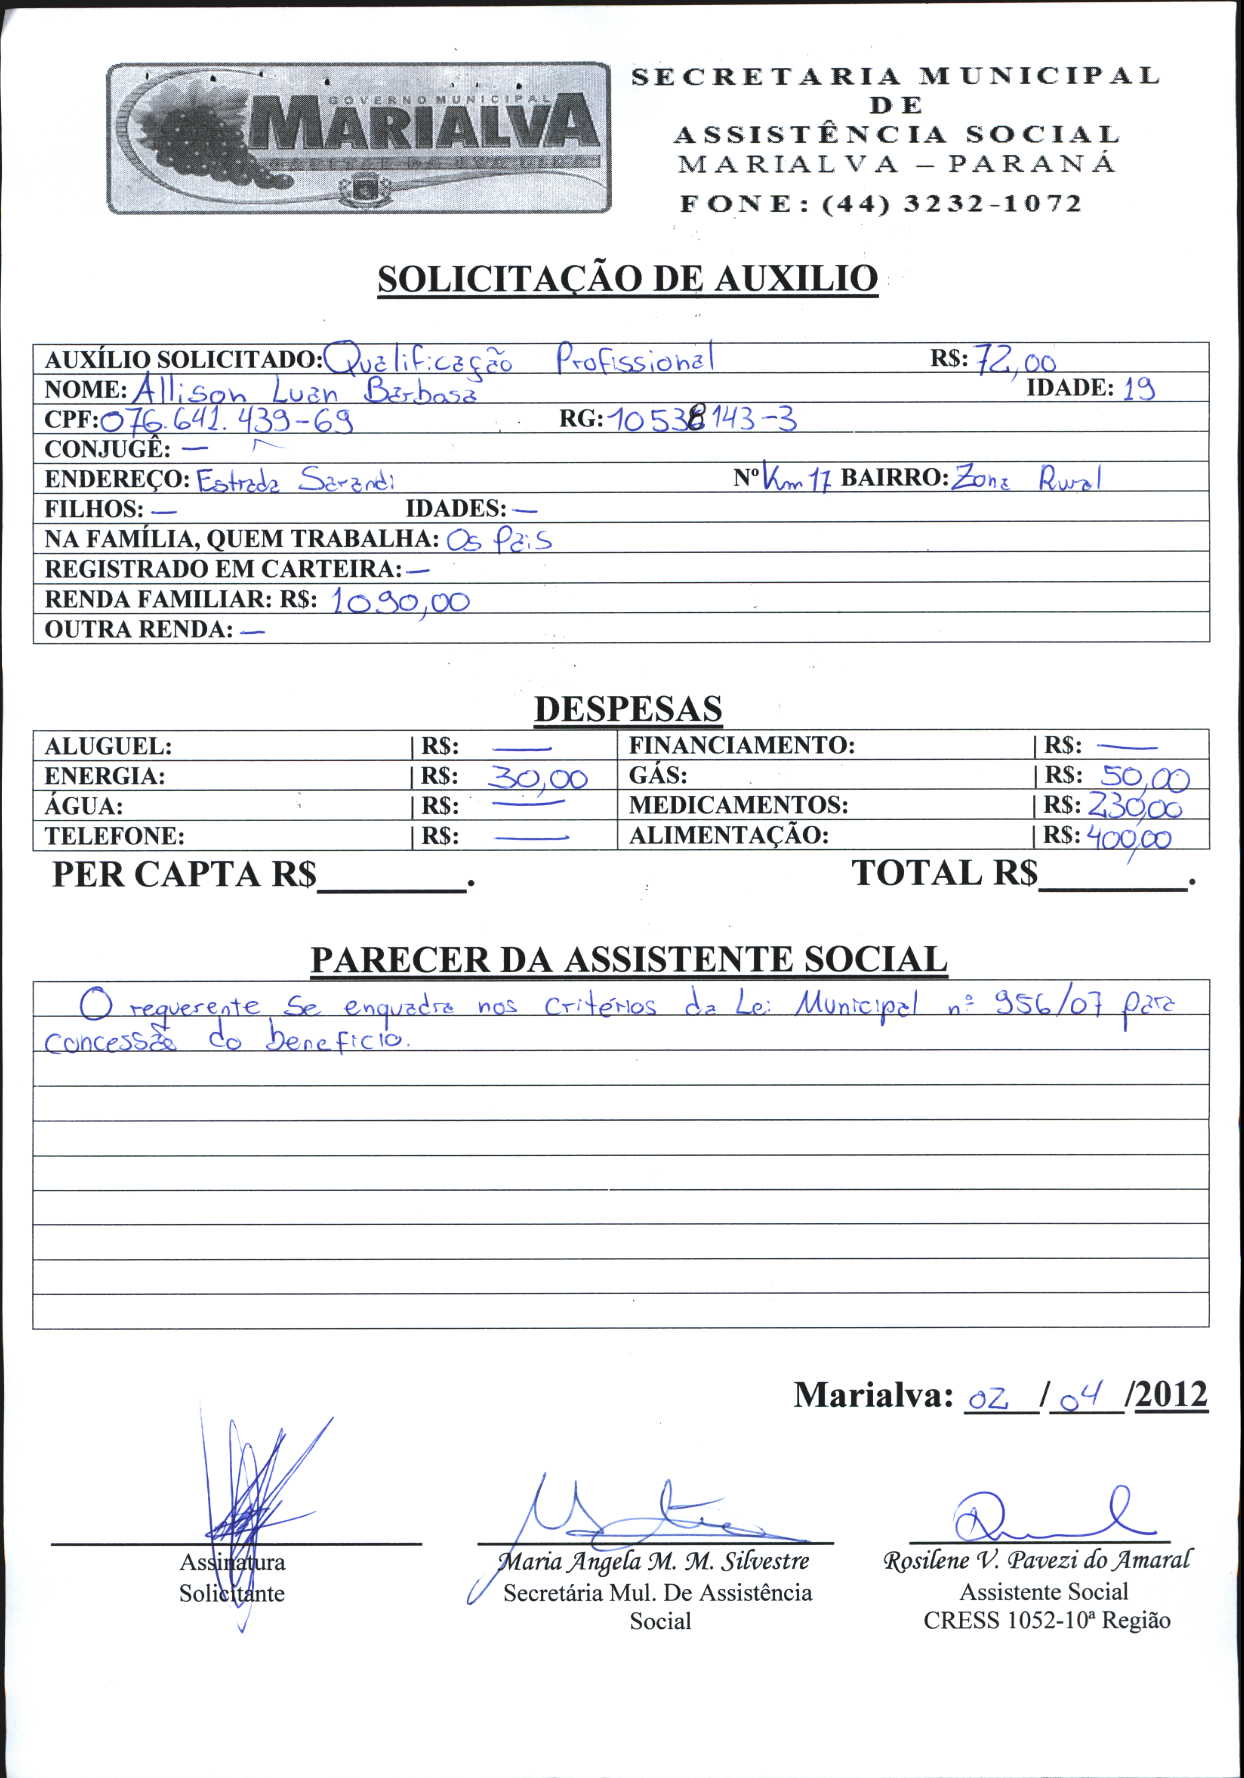 GOVERNO MUNICIPAL
MARIALVA
SECRETARIA MUNICIPAL
DE
ASSISTÊNCIA SOCIAL
MARIALVA – PARANÁ
FONE: (44) 3232-1072
SOLICITAÇÃO DE AUXILIO
AUXÍLIO SOLICITADO: Qualificação Profissional R$: 72,00
NOME: Allison Luan Barbosa IDADE: 19
CPF: 076.641.439-69 RG: 10538143-3
CONJUGÊ: —
ENDEREÇO: Estrada Sarandi Nº Km 17 BAIRRO: Zona Rural
FILHOS: — IDADES: —
NA FAMÍLIA, QUEM TRABALHA: Os Pais
REGISTRADO EM CARTEIRA: —
RENDA FAMILIAR: R$: 1090,00
OUTRA RENDA: —
DESPESAS
ALUGUEL: | R$: — FINANCIAMENTO: | R$: —
ENERGIA: | R$: 30,00 GÁS: | R$: 50,00
ÁGUA: | R$: — MEDICAMENTOS: | R$: 230,00
TELEFONE: | R$: — ALIMENTAÇÃO: | R$: 400,00
PER CAPTA R$________. TOTAL R$________.
PARECER DA ASSISTENTE SOCIAL
O requerente se enquadra nos critérios da Lei Municipal nº 956/07 para
concessão do beneficio.
Marialva: 02 / 04 /2012
Assinatura
Solicitante
Maria Angela M. M. Silvestre
Secretária Mul. De Assistência
Social
Rosilene V. Pavezi do Amaral
Assistente Social
CRESS 1052-10ª Região